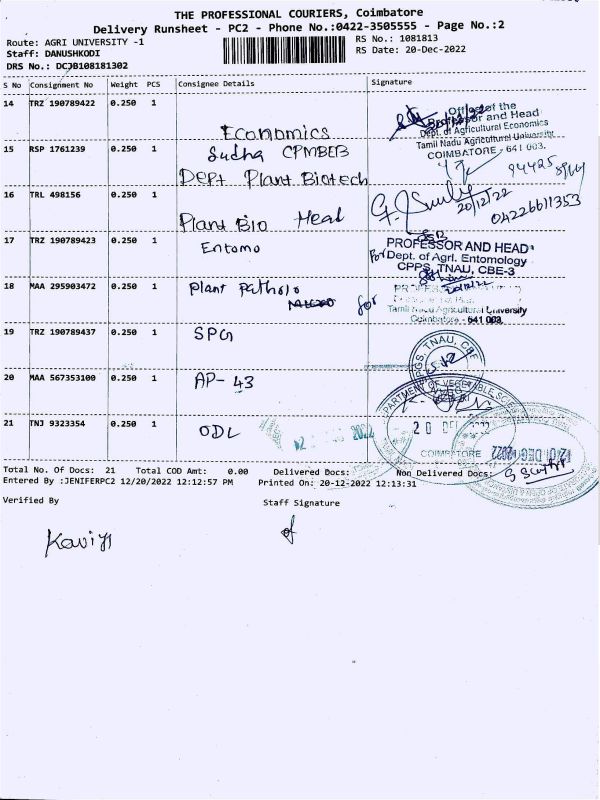 THE PROFESSIONAL COURIERS, Coimbatore
Delivery Runsheet - PC2 - Phone No.:0422-3505555 - Page No.:2
Route: AGRI UNIVERSITY -1
RS No.: 1081813
Staff: DANUSHKODI
RS Date: 20-Dec-2022
DRS No.: DCJB108181302
S No Consignment No Weight PCS Consignee Details Signature
14 TRZ 190789422 0.250 1 Economics
Office of the
Professor and Head
Dept. of Agricultural Economics
Tamil Nadu Agricultural University
COIMBATORE - 641 003.
15 RSP 1761239 0.250 1 Sudha CPMB&B
Dept Plant Biotech
94425
16 TRL 498156 0.250 1 Plant Bio Head
20/12/22
04226611353
17 TRZ 190789423 0.250 1 Entomo
PROFESSOR AND HEAD
For Dept. of Agrl. Entomology
CPPS, TNAU, CBE-3
18 MAA 295903472 0.250 1 Plant Patholo
for
Tamil Nadu Agricultural University
Coimbatore - 641 003.
19 TRZ 190789437 0.250 1 SPG
TNAU, CBE
20 MAA 567353100 0.250 1 AP- 43
DEPARTMENT OF VEGETABLE SCIENCE
21 TNJ 9323354 0.250 1 ODL
20 DEC 2022
COIMBATORE
Total No. Of Docs: 21 Total COD Amt: 0.00 Delivered Docs: Non Delivered Docs:
Entered By :JENIFERPC2 12/20/2022 12:12:57 PM Printed On: 20-12-2022 12:13:31
Verified By Staff Signature